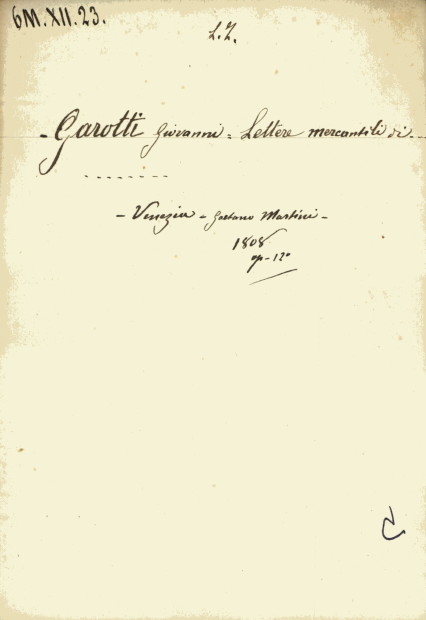 6M.XII.23.
L.Z.
- Garotti Giovanni = Lettere mercantili di...
.......
- Venezia - Gaetano Martini -
1808
op - 12°